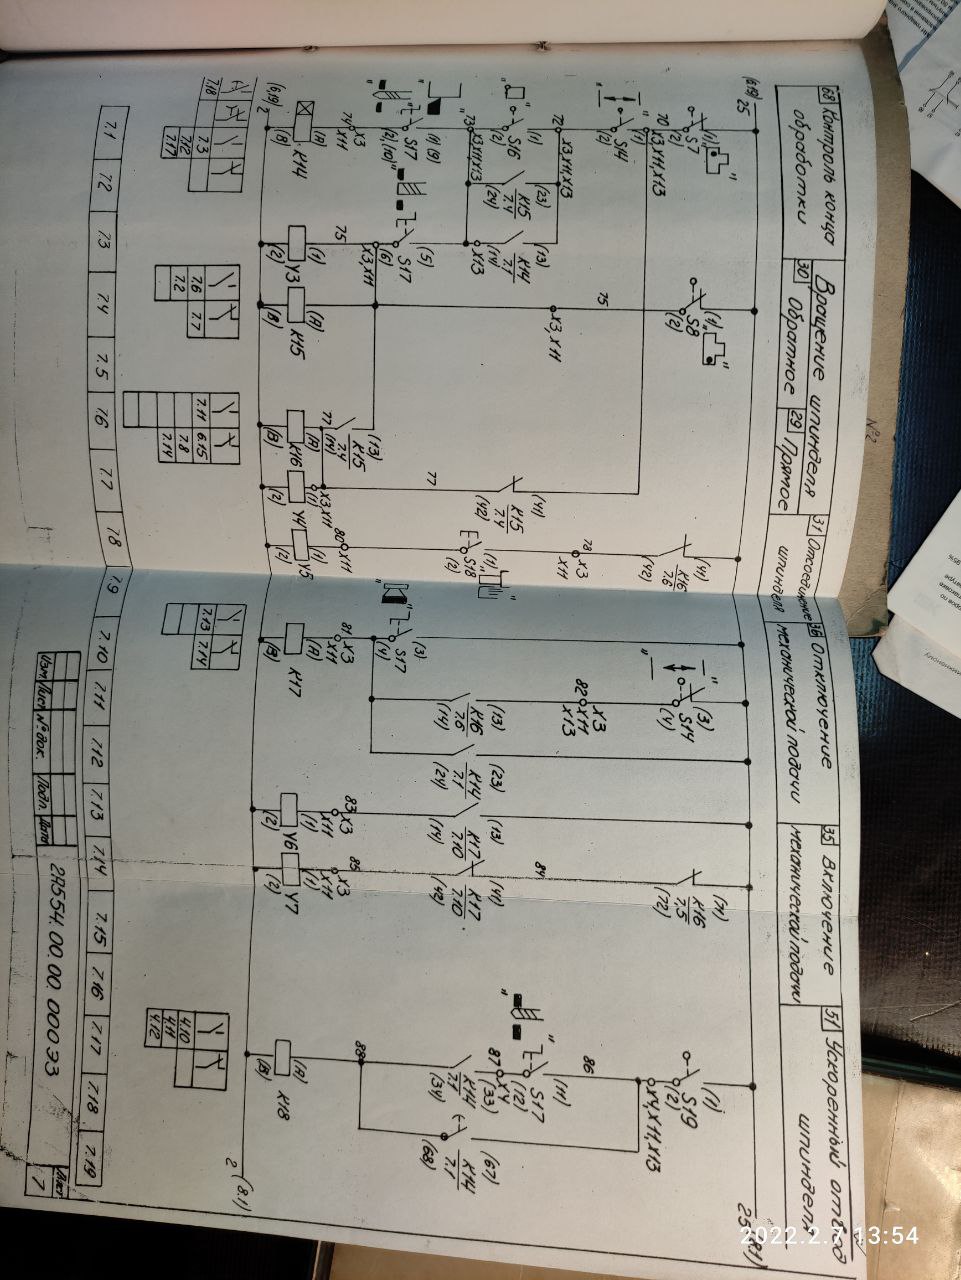 2022.2.7 13:54
№2
68 Контроль конца
обработки
Вращение шпинделя
30 Обратное
29 Прямое
31 Отсоединение
шпинделя
36 Отключение
механической подачи
35 Включение
механической подачи
51 Ускоренный отвод
шпинделя
(6.19)
25
25 (8.1)
(1)
S7
(2)
70
X3,X11,X13
(1)
S14
(2)
72
X3,X11,X13
(1)
S16
(2)
(23)
K15
7.4
(24)
(13)
K14
7.1
(14)
X13
73
X3,X11,X13
(1) (9)
S17
(2),(10)
(5)
S17
(6)
X3,X11
74
X3
X11
(A)
K14
(B)
75
(1)
Y3
(2)
(1)
S8
(2)
75
X3,X11
(A)
K15
(B)
(13)
K15
7.4
(14)
77
(A)
K16
(B)
(41)
K15
7.4
(42)
77
X3,X11
(1)
Y4
(2)
(41)
K16
7.6
(42)
78
X3
X11
(1)
S18
(2)
80
X11
(1)
Y5
(2)
(3)
S17
(4)
81
X3
X11
(A)
K17
(B)
(3)
S14
(4)
82
X3
X11
X13
(13)
K16
7.6
(14)
(23)
K14
7.1
(24)
(13)
K17
7.10
(14)
83
X3
X11
(1)
Y6
(2)
(71)
K16
7.5
(72)
84
(41)
K17
7.10
(42)
85
X3
X11
(1)
Y7
(2)
(1)
S19
(2)
X4,X11,X13
86
(11)
S17
(12)
X4
87
(33)
K14
7.1
(34)
(67)
K14
7.1
(68)
88
(A)
K18
(B)
(6,19)
2
2 (8.1)
7.18
7.3
7.12
7.17
7.6 7.7
7.2
7.11 6.15
7.8
7.14
7.13 7.14
4.10
4.11
4.12
7.1 7.2 7.3 7.4 7.5 7.6 7.7 7.8 7.9 7.10 7.11 7.12 7.13 7.14 7.15 7.16 7.17 7.18 7.19
Изм. Лист № док. Подп. Дата
2А554.00.00.000Э3
Лист
7